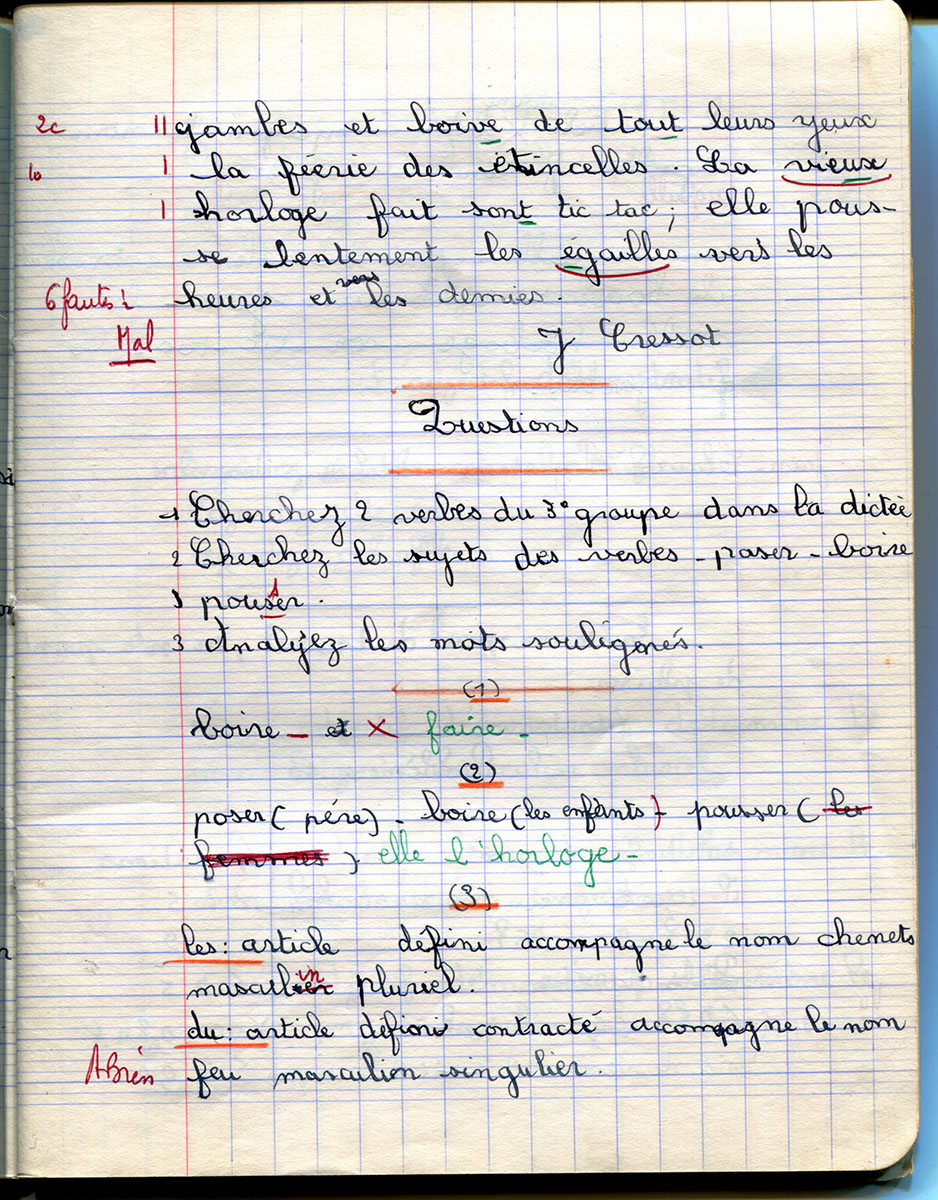 2c 11 jambes et boive de tout leurs yeux
1 la féérie des étincelles. La vieux
1 horloge fait sont tic tac ; elle pous-
se lentement les égaillés vers les
6 fautes 1/2 heures et vers les demies.
Mal J Cressot
Questions
1 Cherchez 2 verbes du 3° groupe dans la dictée
2 Cherchez les sujets des verbes - poser - boire
pousser.
3 Analyez les mots soulignés.
(1)
boire - et × faire -
(2)
poser ( pére) - boire (les enfants) - pousser ( les
femmes ) elle l'horloge -
(3)
les: article défini accompagne le nom chenets
masculin pluriel.
du: article défini contracté accompagne le nom
ABien feu masculion singulier.